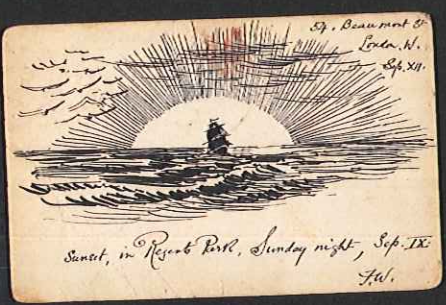 54, Beaumont St
London. W.
Sep. XII.
Sunset, in Regents Park, Sunday night, Sep. IX.
F.W.